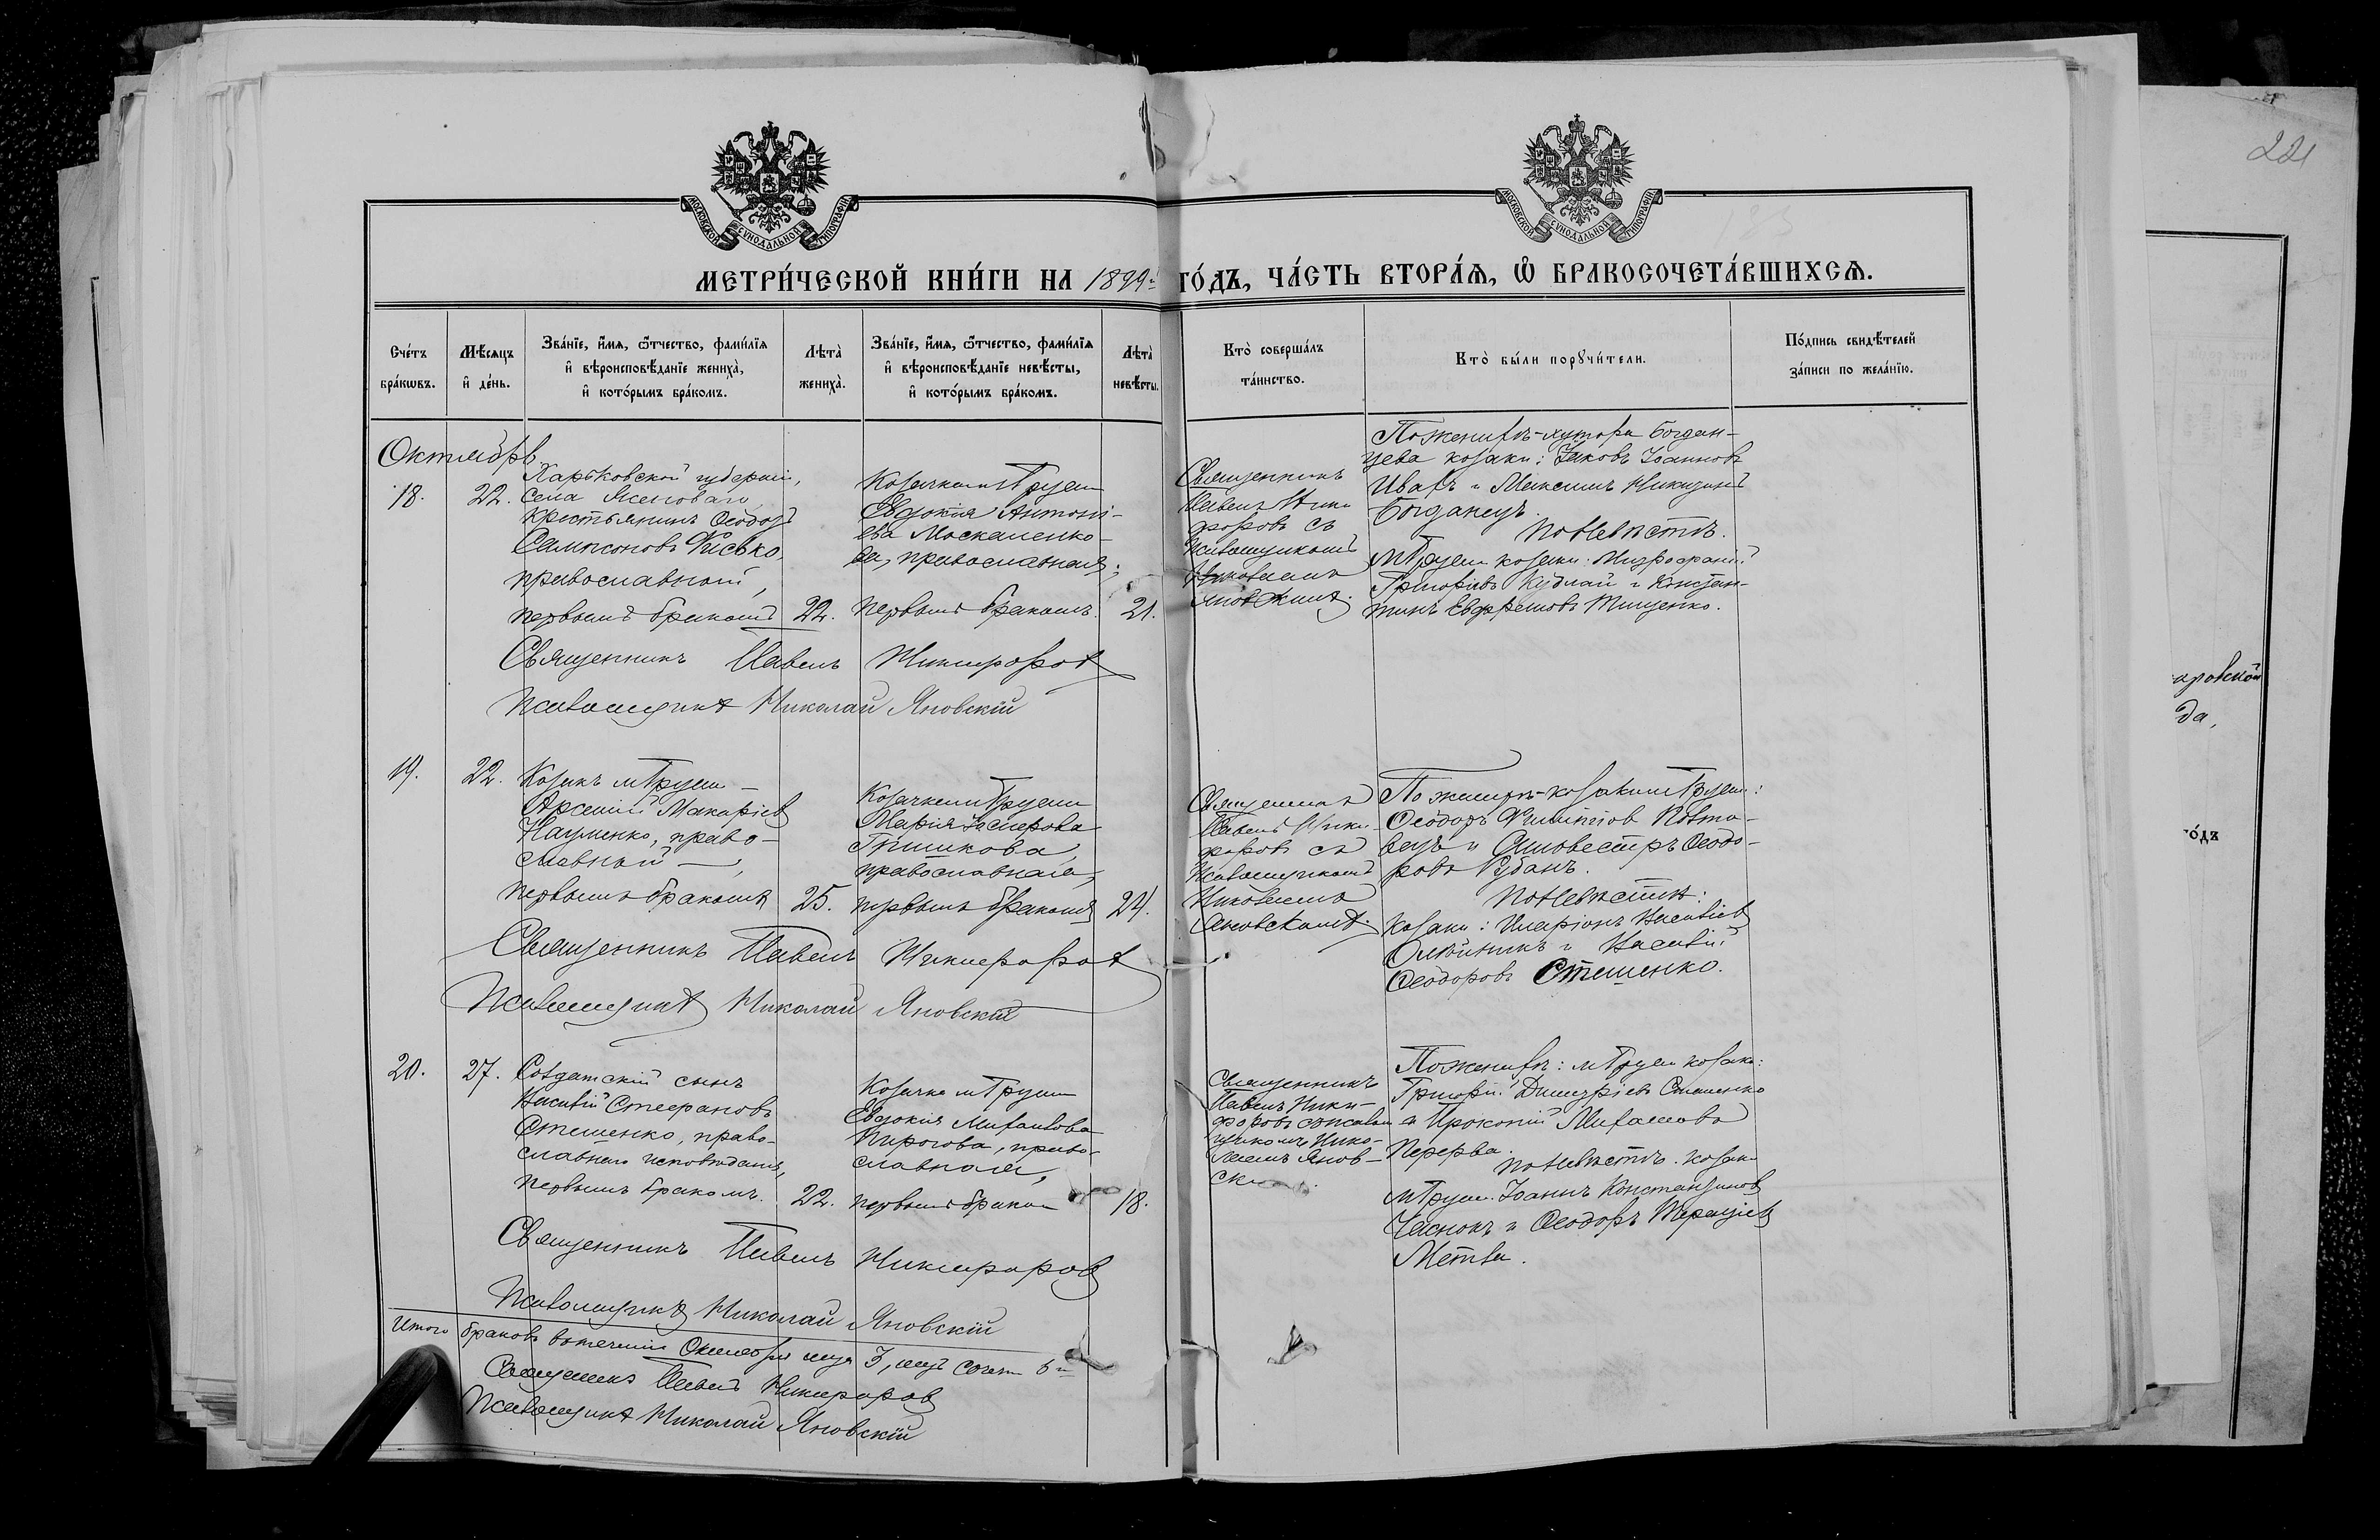 221
МОСКОВСКОЙ СУНОДАЛЬНОЙ ТИПОГРАФІИ
МОСКОВСКОЙ СУНОДАЛЬНОЙ ТИПОГРАФІИ
МЕТРИ́ЧЕСКОЙ КНИ́ГИ НА 1899 ГО́ДЪ, ЧА́СТЬ ВТОРА́Я, Ѡ҆ БРАКОСОЧЕТА́ВШИХСѦ.
Сче́тъ бра́кѡвъ.
Мѣ́сяцъ и҆ де́нь.
Зва́нїе, и҆́мя, ѻ҆́тчество, фами́лїя и҆ вѣроисповѣ́данїе жениха̀, и҆ кото́рымъ бра́комъ.
Лѣта̀ жениха̀.
Зва́нїе, и҆́мя, ѻ҆́тчество, фами́лїя и҆ вѣроисповѣ́данїе невѣ́сты, и҆ кото́рымъ бра́комъ.
Лѣта̀ невѣ́сты.
Кто̀ соверша́лъ та́инство.
Кто̀ бы́ли порꙋчи́тели.
По́дпись свидѣ́телей за́писи по жела́нїю.
Октябрь
18.
22.
Харьковской губерніи,
села Ясеноваго
крестьянинъ Ѳеодоръ
Сампсоновъ Фисько,
православный,
первымъ бракомъ
22.
Козачка м Груни
Евдокія Антоні-
ева Москаленко-
ва, православная;
первымъ бракомъ.
21.
Священникъ
Павелъ Ники
форовъ съ
Псаломщикомъ
Николаемъ
Яновскимъ.
По женихѣ-хутора Богдан-
цева козаки: Іаковъ Іоанновъ
Ивахъ и Максимъ Никитинъ
Богданецъ.
по Невѣстѣ.
м Груни козаки: Митрофаній
Григоріевъ Кудлай и Констан-
тинъ Евфремовъ Тищенко.
Священникъ Павелъ Никифоровъ
Псаломщикъ Николай Яновскій
19.
22.
Козакъ м Груни
Арсеній Макаріевъ
Науменко, право-
славный,
первымъ бракомъ
25.
Козачка м Груни
Марія
Гришкова,
православная,
первымъ бракомъ
24.
Священникъ
Павелъ Ники-
форовъ съ
Псаломщикомъ
Николаемъ
Яновскимъ.
По женихѣ-козаки м Груни:
Ѳеодоръ Филиповъ Повта-
вецъ и Силовестръ Ѳеодо-
ровъ Рубанъ.
по Невѣстѣ:
козаки: Иларіонъ Василіевъ
Олейникъ и Василій
Ѳеодоровъ Стешенко.
Священникъ Павелъ Никифоровъ
Псаломщикъ Николай Яновскій
20.
27.
Солдатскій сынъ
Василій Стефановъ
Стешенко, право-
славнаго исповѣданія,
первымъ бракомъ.
22.
Козачка м Груни
Евдокія Михаилова
Пирогова, право-
славная,
первымъ браком
18.
Священникъ
Павелъ Ники-
форовъ съ псалом
щикомъ Нико-
лаемъ Янов-
ски
По женихѣ: м Груни козаки:
Григорій Димитріевъ Стешенко
и Прокопій Михаиловъ
Перерва.
по Невѣстѣ. козаки
м Груни. Іоаннъ Константиновъ
Часнокъ и Ѳеодоръ Терентіевъ
Метла.
Священникъ Павелъ Никифоровъ
Псаломщикъ Николай Яновскій
Итого браковъ въ теченіи Октября м-ца 3,
Священникъ Павелъ Никифоровъ
Псаломщикъ Николай Яновскій
аровской
да,
го́дъ